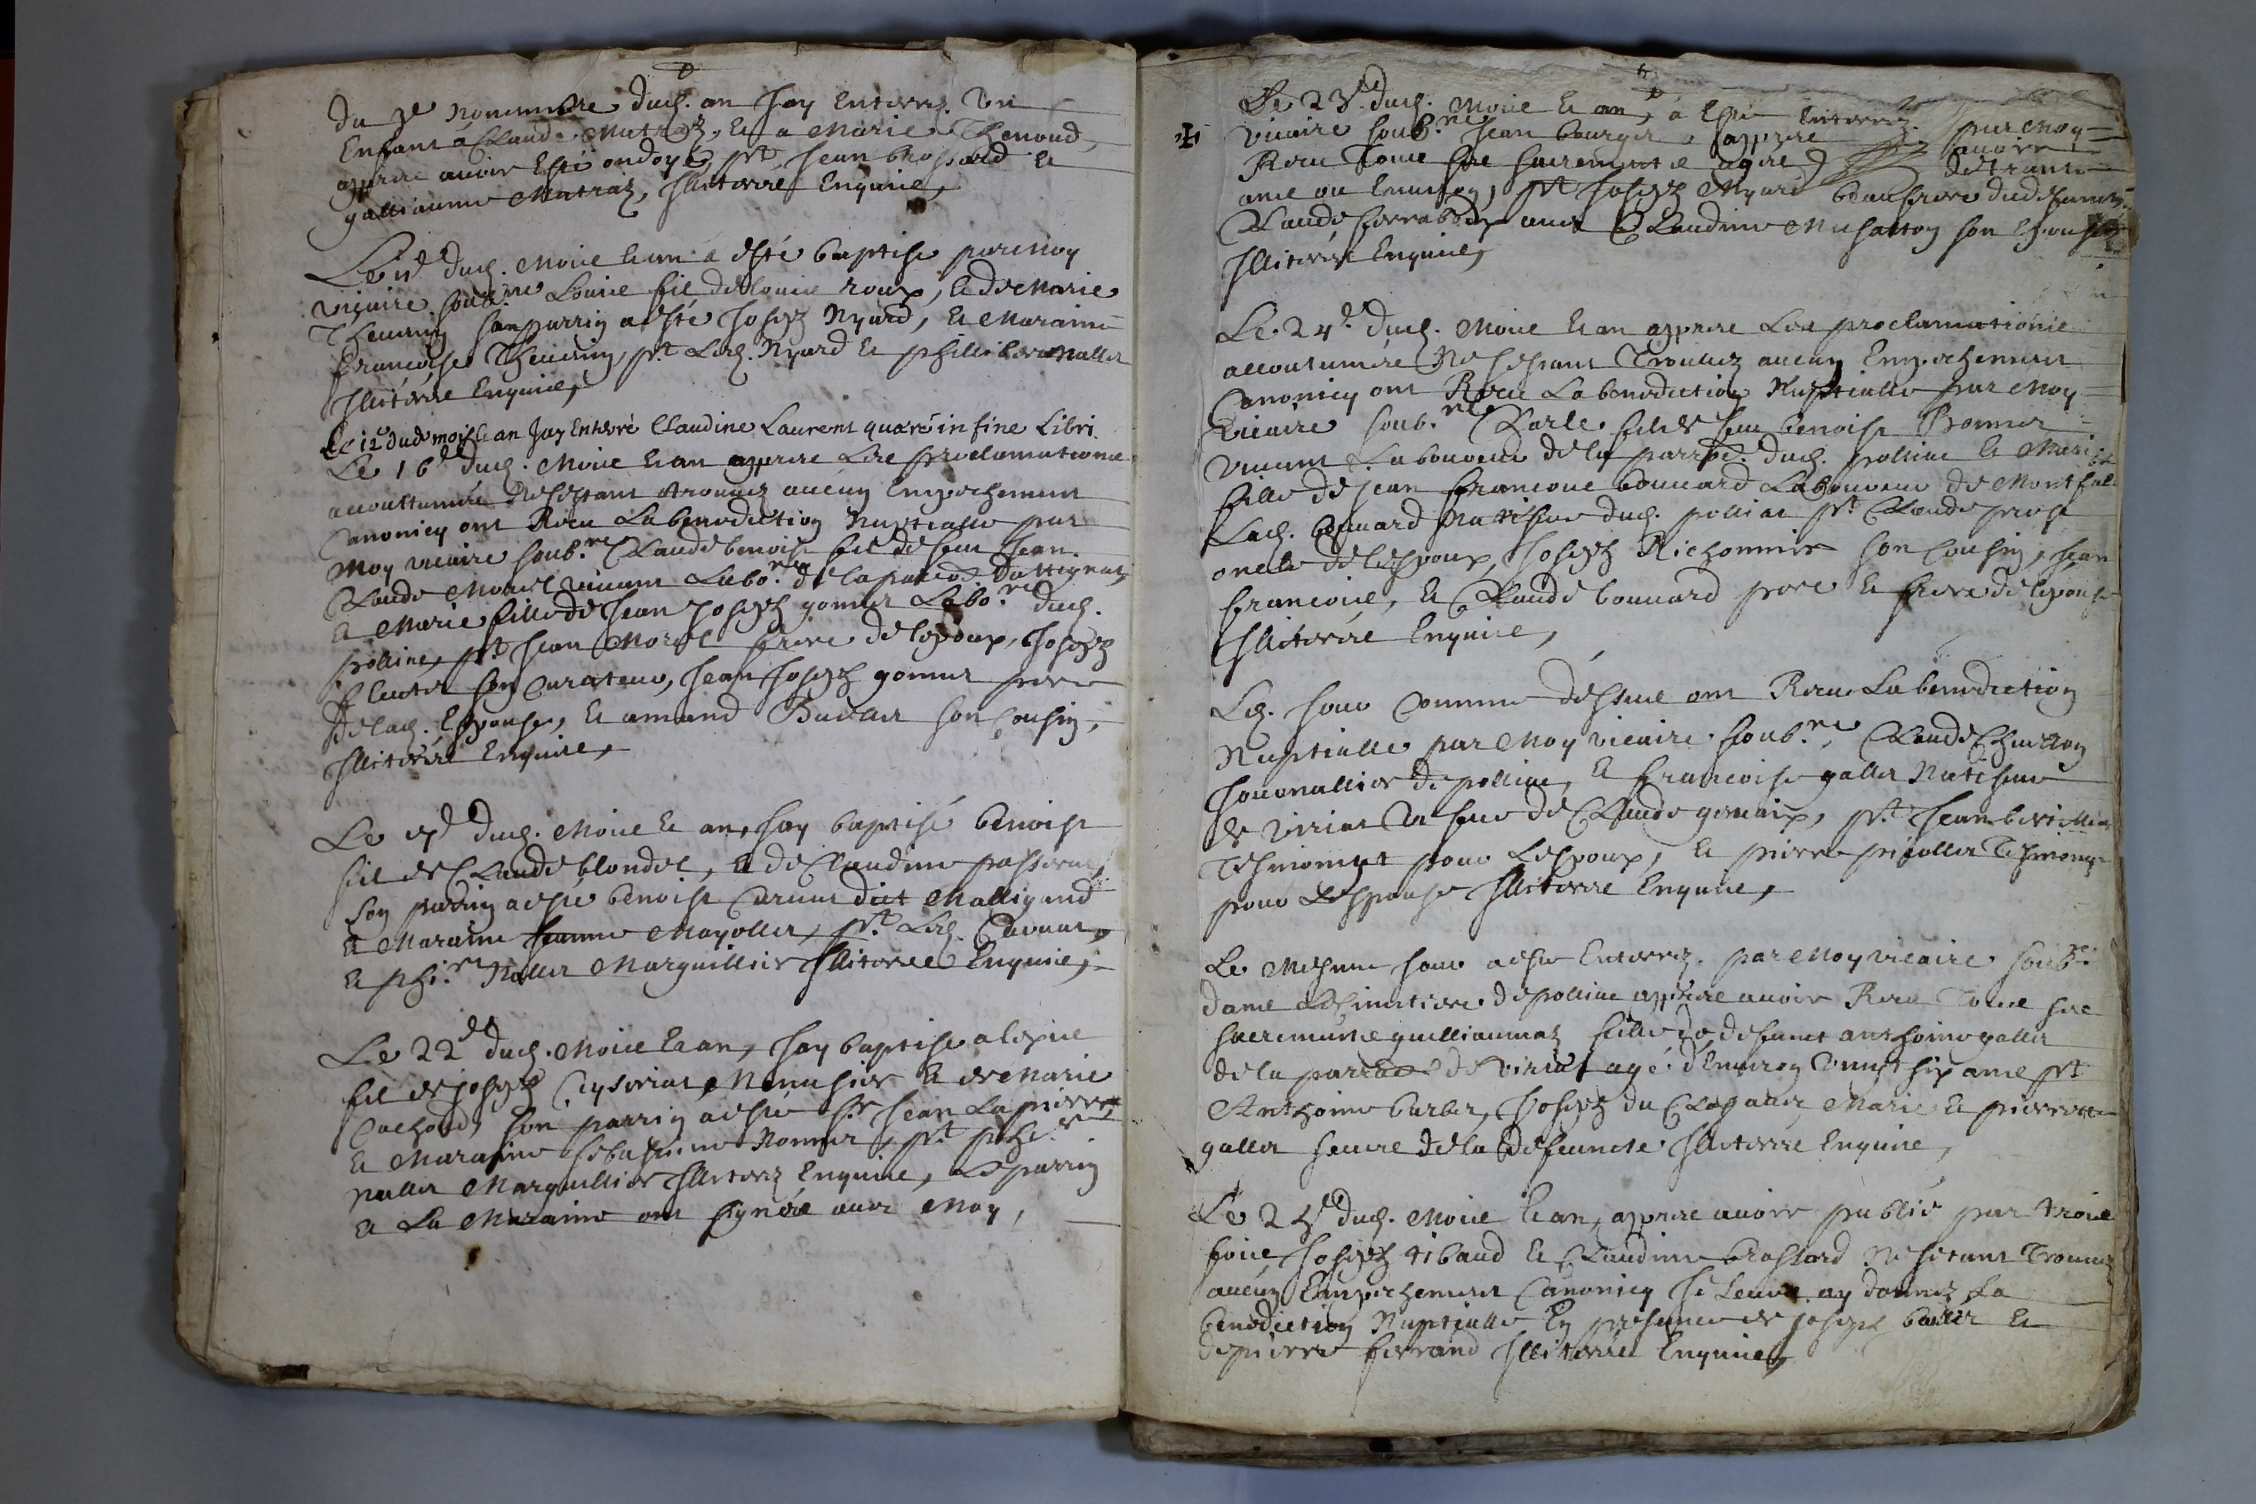 Du novembre dud. an Jay Enterrez Un
Enfant a Claude Matraz, et a Marie Thenoud,
apprés avoir Esté ondoyé, pnt Jean brossard et
gullaume Matraz, Illiterés Enquis,
Le dud. Mois et an a esté baptisé par Moy
vicaire soub.né Louis fils de Louis roux, et de Marie
Thevenin son parrin a esté Joseph Nyard, et Maraine
Francoise Thevenin, pnt Led. Nyard et Philibert Nallet
Illiterés Enquis,
Le 12e dud mois et an Jay Enterré Claudine Laurent quære in fine Libri
Le 16e dud. Mois et an apprés Les proclamations
accouttumées Ne sestant trouvez aucun Empechement
Canonicq ont Receu La benediction Nuptialle par
Moy vicaire soub.né Claude benoist fils de feu Jean
Claude Morel vivant Labo.r de la parois. dattignat,
et Marie fille de Jean Joseph gomet Labo.r dud.
pollias, pnt Jean Morel frere de lespoux, Joseph
son Curateur, Jean Joseph gomet pere
De lad. Espouse, et amand son Cousin,
Illiterés Enquis,
Le dud. Mois et an, Jay baptisé benoist
fils de Claude blondel, et de Claudine
Son parrin a esté benoist Carruat dict Malligand
et Maraine Jeanne Mayollet, pnt Led. Carruat,
et Phi.rt Nallet Marguillier Illiterés Enquis,
Le 22e dud. Mois et an, Jay baptisé
fils de Joseph Ceyseriat Menusier et de Marie
Cachod, son parrin a esté Sr Jean Lapierre,
et Maraine Sebastienne Monnet, pnt Phi.rt
Nallet Marguillier Illiterez Enquis, Le parrin
et La Maraine ont signés avec Moy,
Le 23e dud. Mois et an, a Esté Enterrez par Moy
vicaire soub.né Jean bourget apprés avoir
Receu Tous ses sacrements agés de trante
ans ou Environ, pnt Joseph Nyard beaufrere dud defunct,
Claude avec Claudine son Espouse
Illiterés Enquis,
Le 24e dud. Mois et an apprés Les proclamations
accoutumées Ne sestant Trouvez aucun Empechement
Canonicq ont Receu La benediction Nuptialle par Moy
vicaire soub.né Charle fils de feu benoist Bonnet
vivant Laboureur de la parrois. dud. pollias et Marie
fille de Jean Francois bouvard Laboureur de Montfal
Lad. bouvard Natifve dud. pollias pnt Claude prost
oncle de lespoux, Joseph Richonnier son Cousin, Jean
Francois, et Claude bouvard pere et frere de lespouse
Illiterés Enquis,
Led. Jour Comme dessus ont Receu La benediction
Nuptialle par Moy vicaire soub.né, Claude Chevillon
Journallier de pollias, et francoise gallet Natifve
de viriat vefve de Claude gervaix, pnt Jean
Tesmoingt pour Lespoux, et pierre Tesmoingt
pour Lespouse Illiterés Enquis,
Le Mesme Jour a esté Enterrez par Moy vicaire soub.né
dans Le Cimetiere de pollias apprés avoir Receu Tous ses
sacrements guilliaumaz fille de defunct anthoine gallet
de la parrois de viriat agé d'Environ vingt six ans pnt
Anthoine barbet, Joseph du Clos Marie et pierrette
gallet seurs de la defuncte Illiterés Enquis,
Le dud. Mois et an, apprés avoir publié par trois
fois Joseph tibaud et Claudine brossard Ne sétant Trouvez
aucun Empechement Canonicq Je Leurs ay donnez La
benediction Nuptialle En presence de Joseph et
de pierre ferrand Illiterés Enquis,